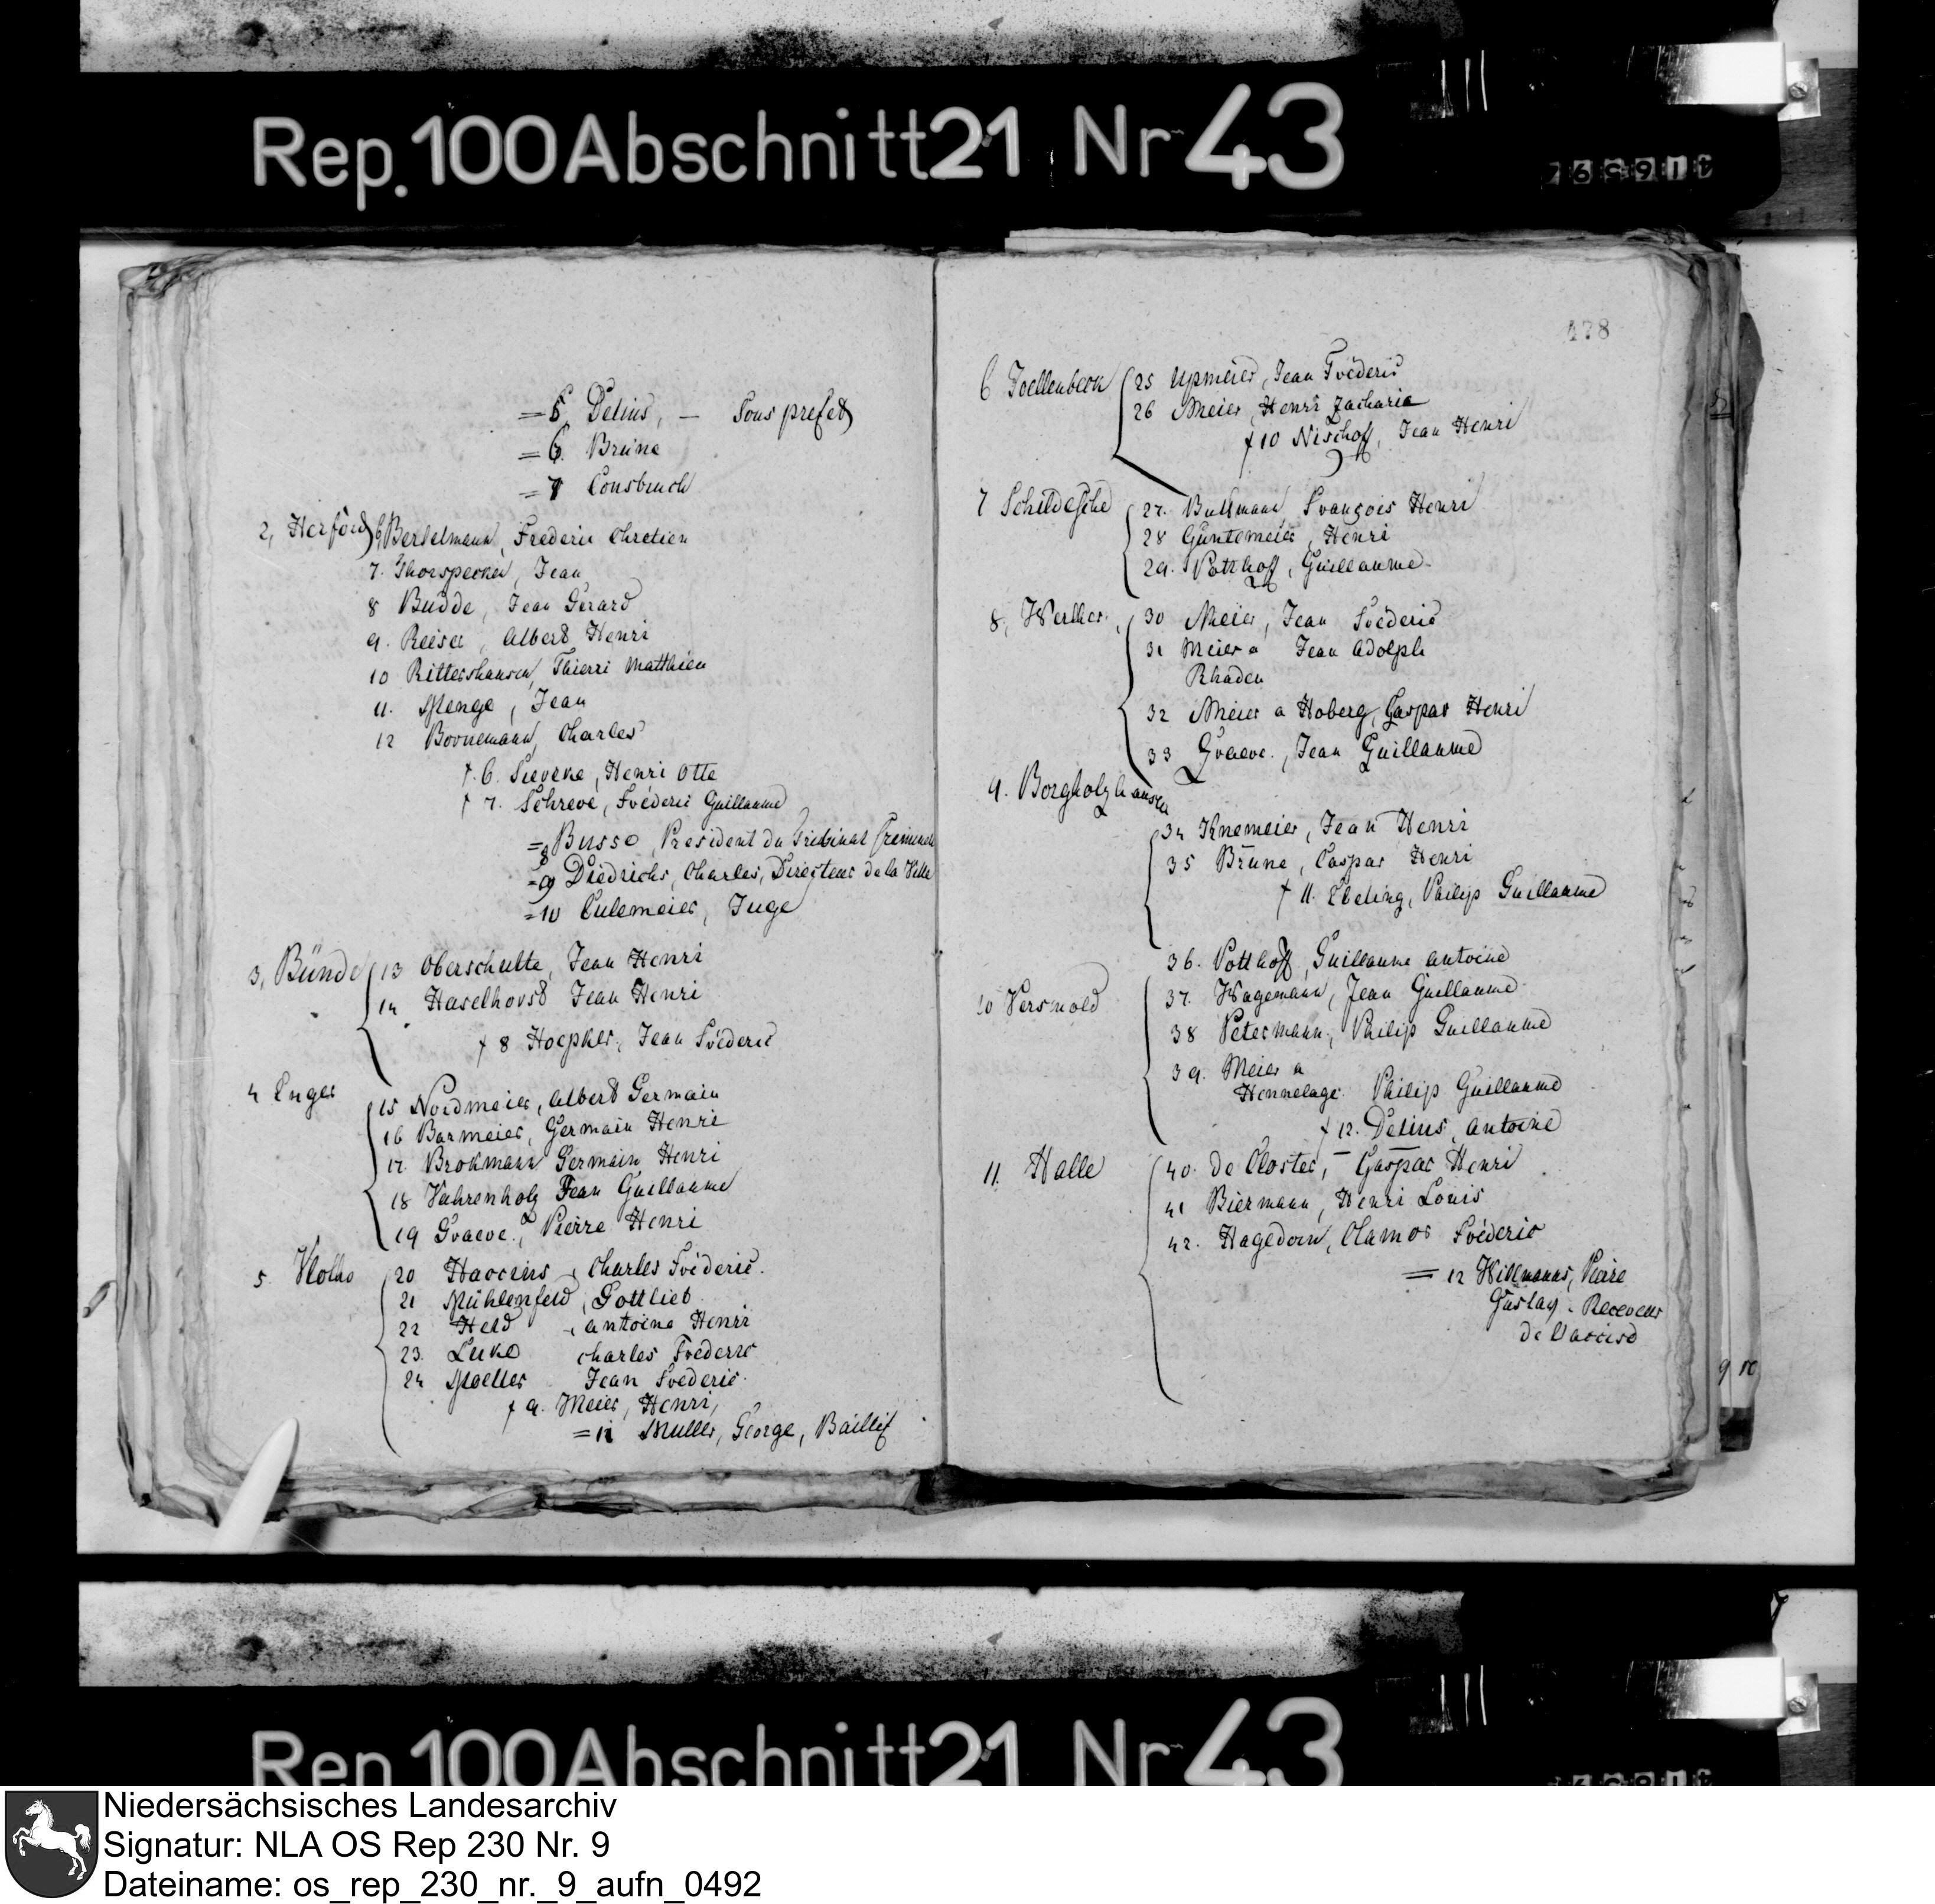 Rep. 100 Abschnitt 21 Nr 43
= 5, Delius, — Sous prefet
= 6. Brüne
= 7 Consbruch
2, Herford 6 Bertelmann, Frederic Chretien
7. Thorspecken, Jean
8 Budde, Jean Gerard
9. Reiser, Albert Henri
10 Rittershausen, Thierri Matthieu
11. Menge, Jean
12 Bornemann, Charles
† 6. Sieveke, Henri Otto
† 7. Schreve, Fréderic Guillaume
= 8 Busse, President du Tribunal Criminel
= 9 Diedrichs, Charles, Directeur de la Ville
= 10 Culemeier, Juge
3, Bünde 13 Oberschulte, Jean Henri
14 Haselhorst Jean Henri
† 8 Hoepker, Jean Fréderic
4 Enger
15 Nordmeier, Albert Germain
16 Barmeier, Germain Henri
17. Brokmann Germain Henri
18 Vahrenholz Jean Guillaume
19 Graeve, Pierre Henri
5. Vlotho 20 Charles Fréderic.
21 Mühlenfeld, Gottlieb
22 Held, Antoine Henri
23. Luke Charles Fréderic
24 Moeller Jean Fréderic.
† 9. Meier, Henri,
= 11 Muller, George, Baillif
478
6 Joellenbeck 25 Upmeier, Jean Fréderic
26 Meier, Henri Zacharie
† 10 Nischoff, Jean Henri
7 Schildesche 27. Bultmann, François Henri
28 Güntemeier, Henri
29. Potthoff, Guillaume
8, Werther, 30 Meier, Jean Fréderic
31 Meier a Jean Adolph
Rhaden
32 Meier a Hoberg, Gaspar Henri
33 Graeve, Jean Guillaume
9. Borgholzhausen
34 Knemeier, Jean Henri
35 Brüne, Caspar Henri
† 11. Ebeling, Philip Guillaume
36. Potthoff, Guillaume Antoine
10 Versmold 37. Wagemann, Jean Guillaume
38 Petermann, Philip Guillaume
39. Meier a
Hennelage Philip Guillaume
† 12. Delius, Antoine
11. Halle 40. de Closter, Gaspar Henri
41 Biermann, Henri Louis
42. Hagedorn, Clamor Fréderic
= 12 Hillmanns, Pierre
Gustav. Receveur
de l'accise
Rep. 100 Abschnitt 21 Nr 43
Niedersächsisches Landesarchiv
Signatur: NLA OS Rep 230 Nr. 9
Dateiname: os_rep_230_nr._9_aufn_0492